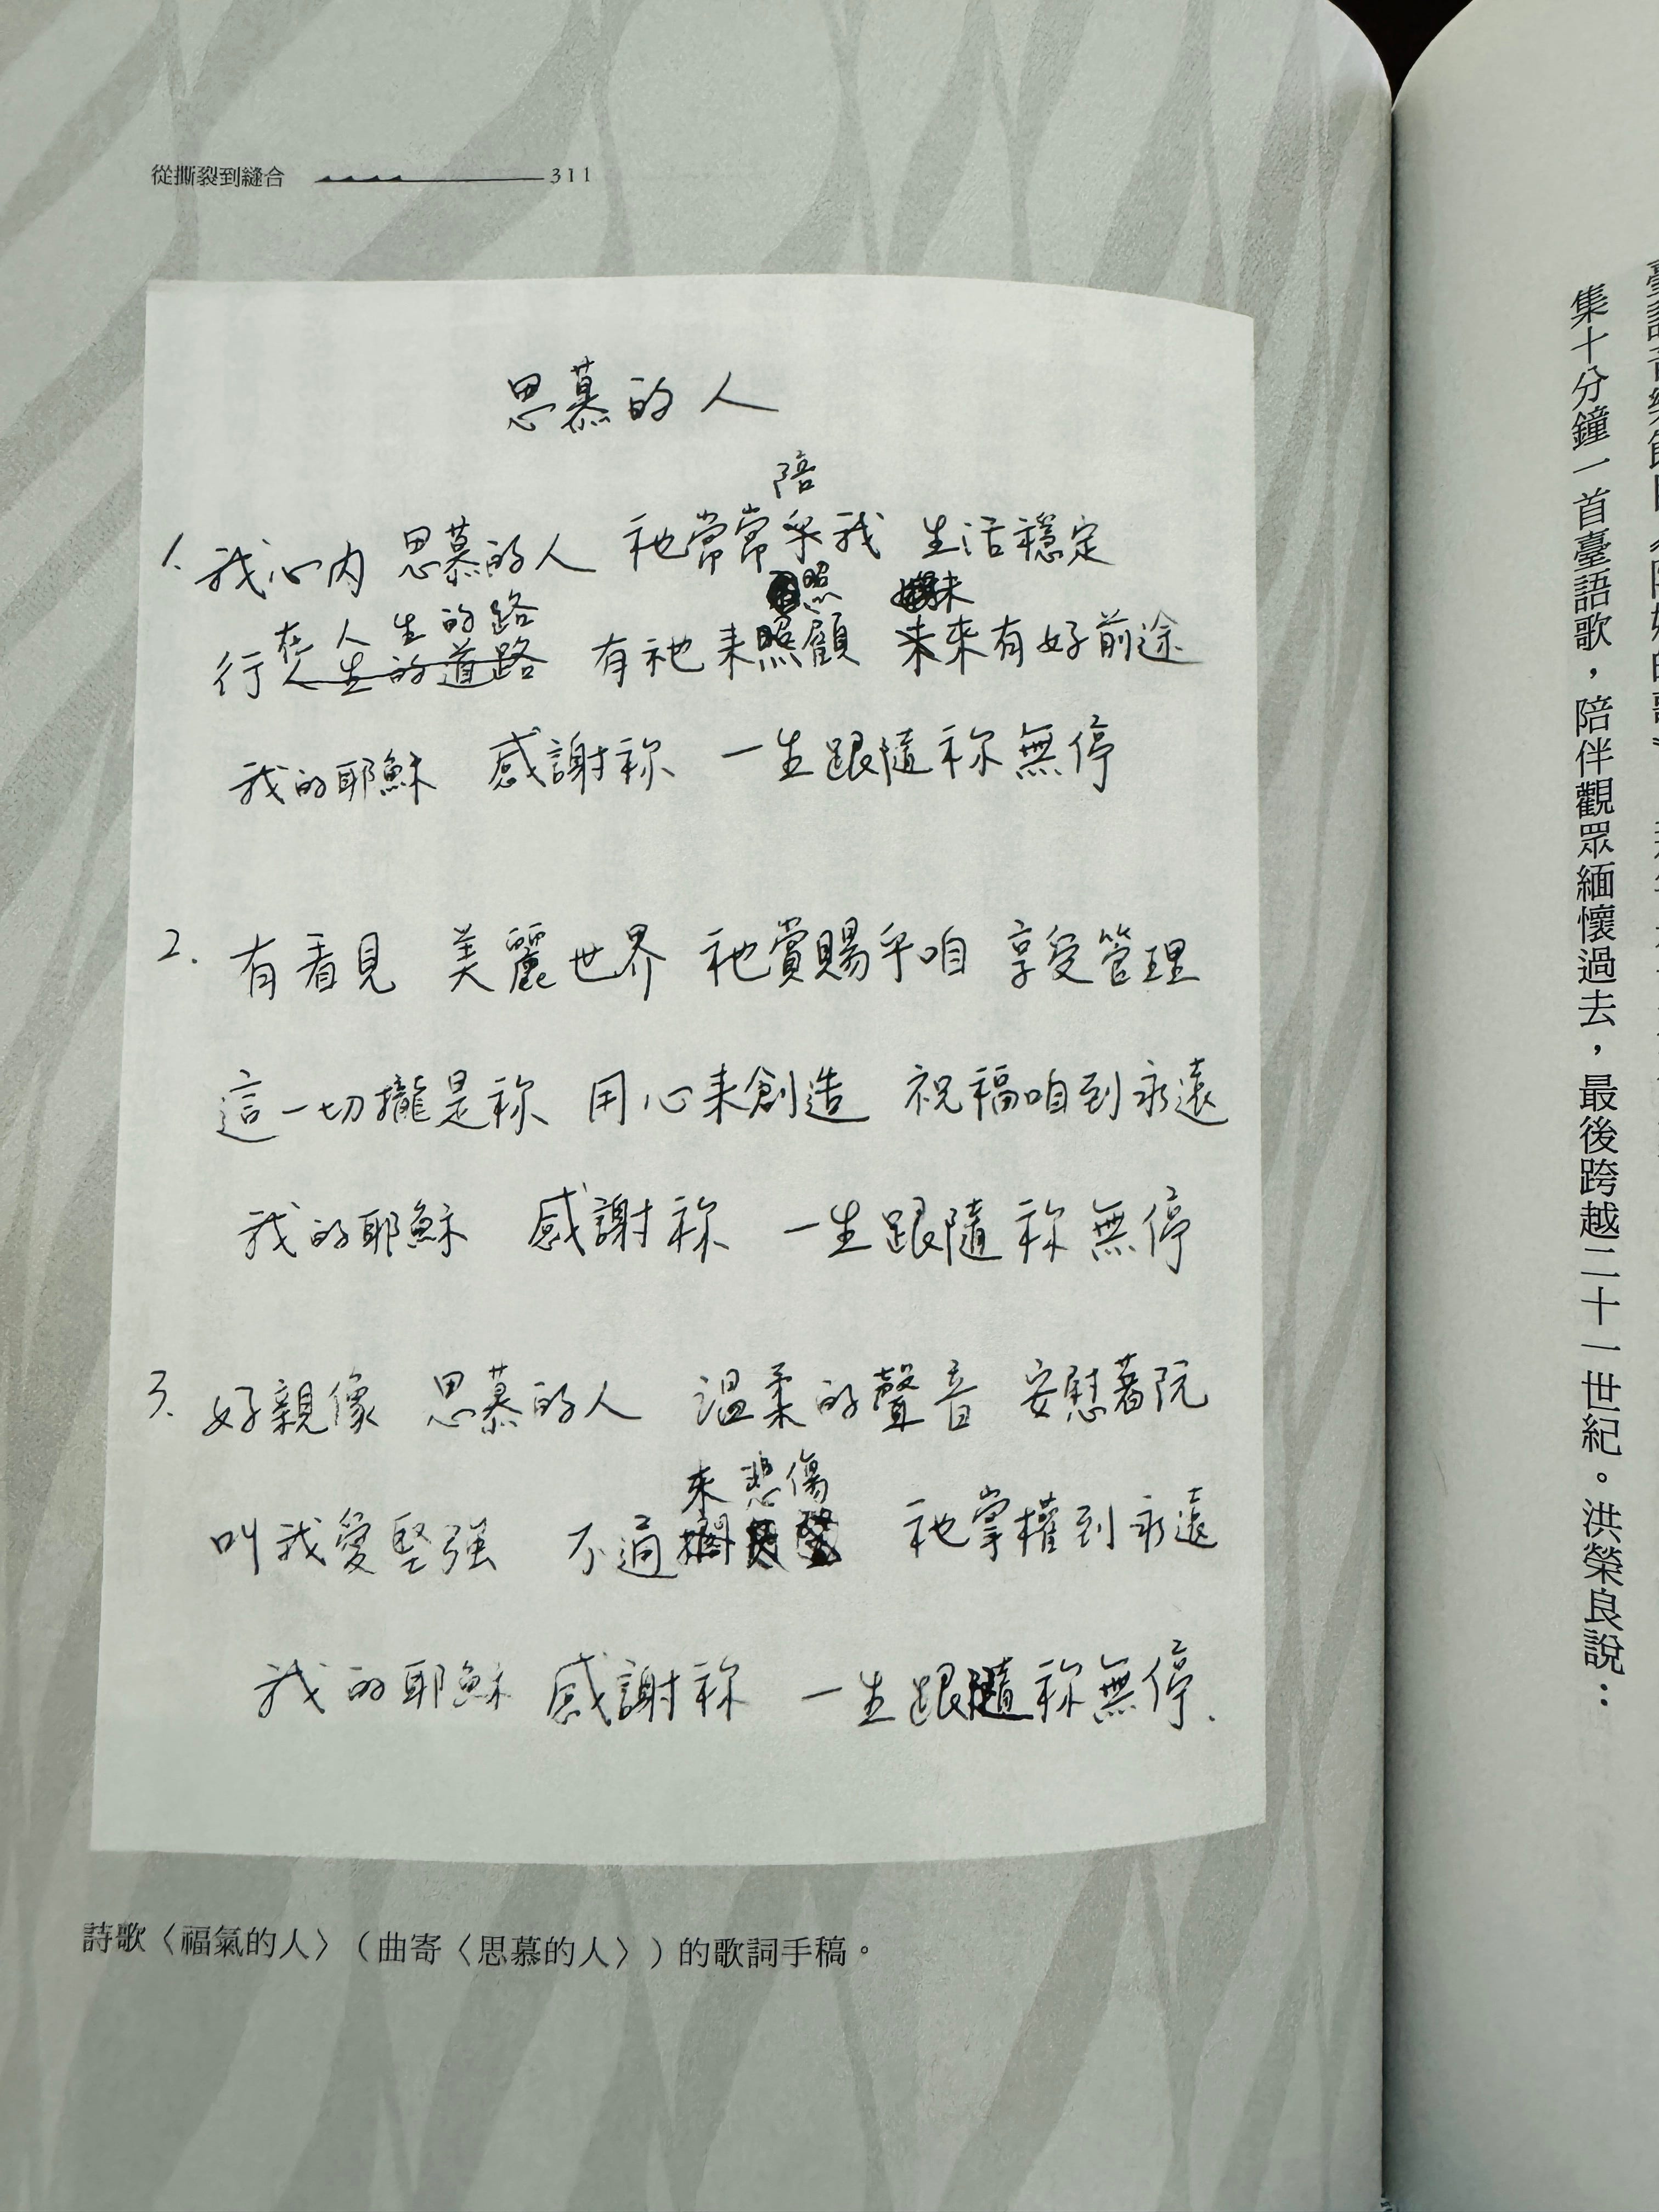 從撕裂到縫合 311
思慕的人
陪
1. 我心內 思慕的人 祂常常乎我 生活穩定
照 未
在人生的路
行人生的道路 有祂来照顧 未來有好前途
我的耶穌 感謝祢 一生跟隨祢無停
2. 有看見 美麗世界 祂賞賜乎咱 享受管理
這一切攏是祢 用心来創造 祝福咱到永遠
我的耶穌 感謝祢 一生跟隨祢無停
3. 好親像 思慕的人 溫柔的聲音 安慰著阮
來悲傷
叫我愛堅強 不通 祂掌權到永遠
我的耶穌 感謝祢 一生跟隨祢無停.
詩歌〈福氣的人〉（曲寄〈思慕的人〉）的歌詞手稿。
集十分鐘一首臺語歌，陪伴觀眾緬懷過去，最後跨越二十一世紀。洪榮良說：